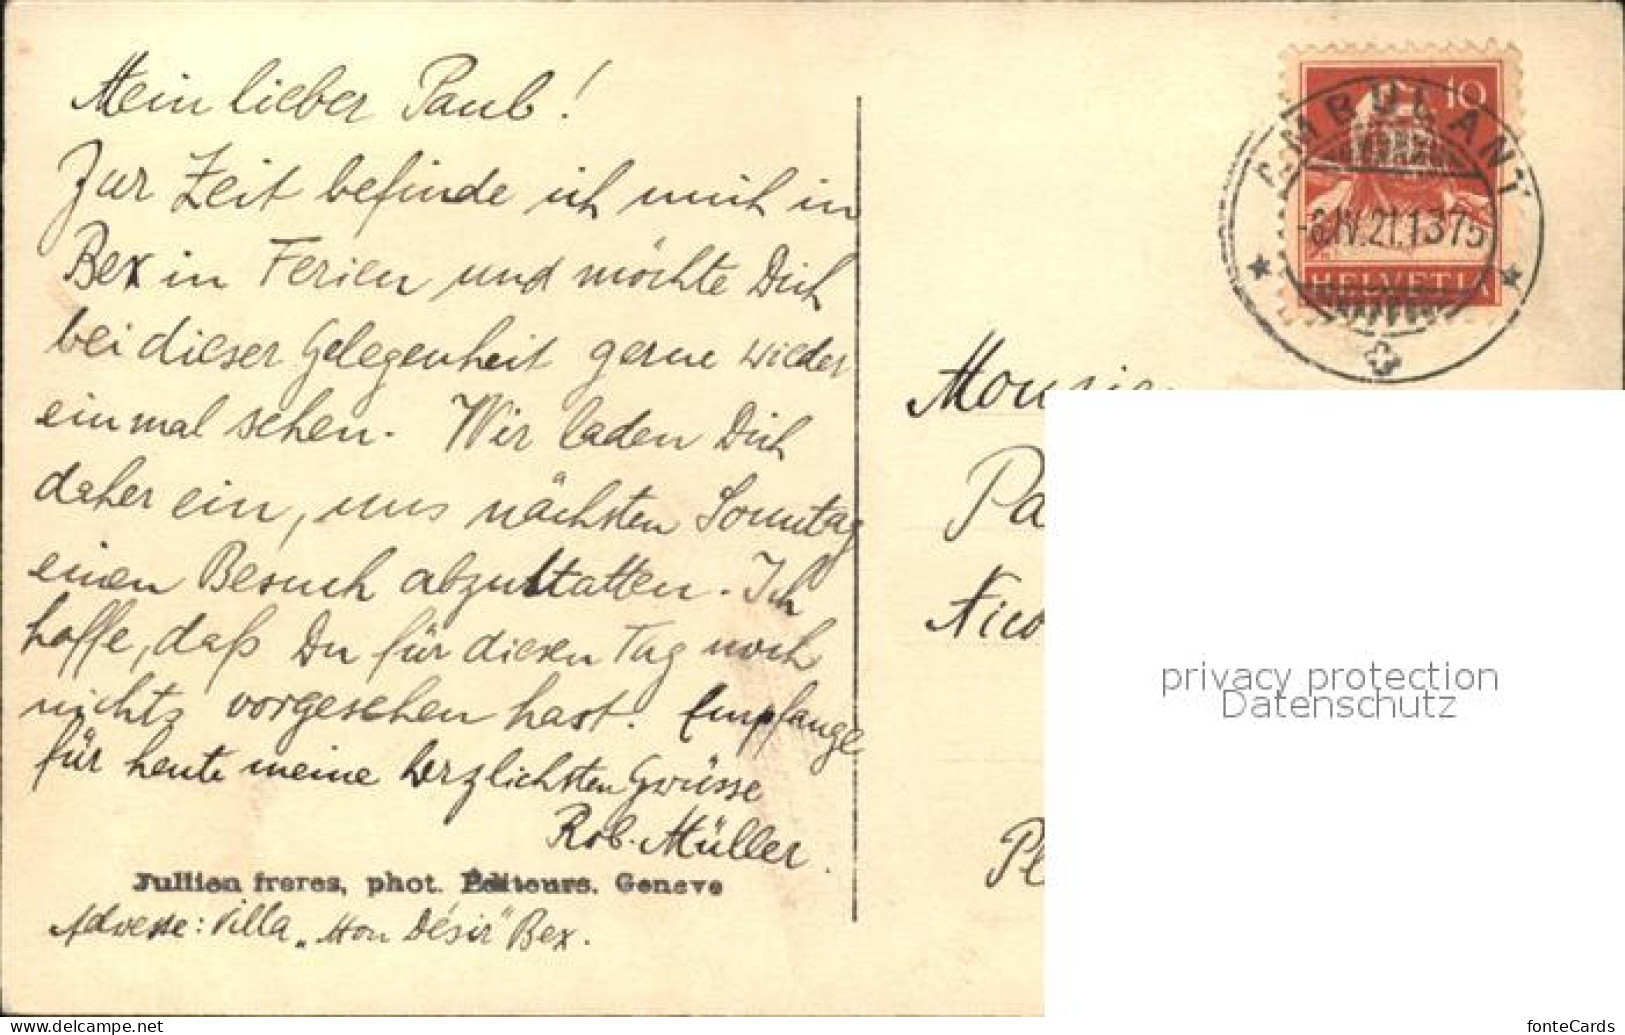 Mein lieber Paul!
Zur Zeit befinde ich mich in
Bex in Ferien und möchte Dich
bei dieser Gelegenheit gerne wieder
einmal sehen. Wir laden Dich
daher ein, uns nächsten Sonntag
einen Besuch abzustatten. Ich
hoffe, daß Du für diesen Tag noch
nichts vorgesehen hast. Empfange
für heute meine herzlichsten Grüsse
Rob. Müller.
Jullien freres, phot. Éditeurs. Geneve
Adresse: Villa „Mon Désir" Bex.
10
AMBULANT
HELVETIA
privacy protection
Datenschutz
www.delcampe.net
fonteCards